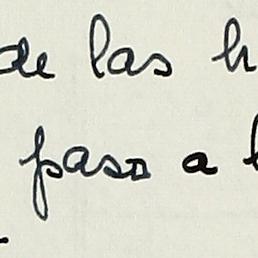 de las h
paso a l